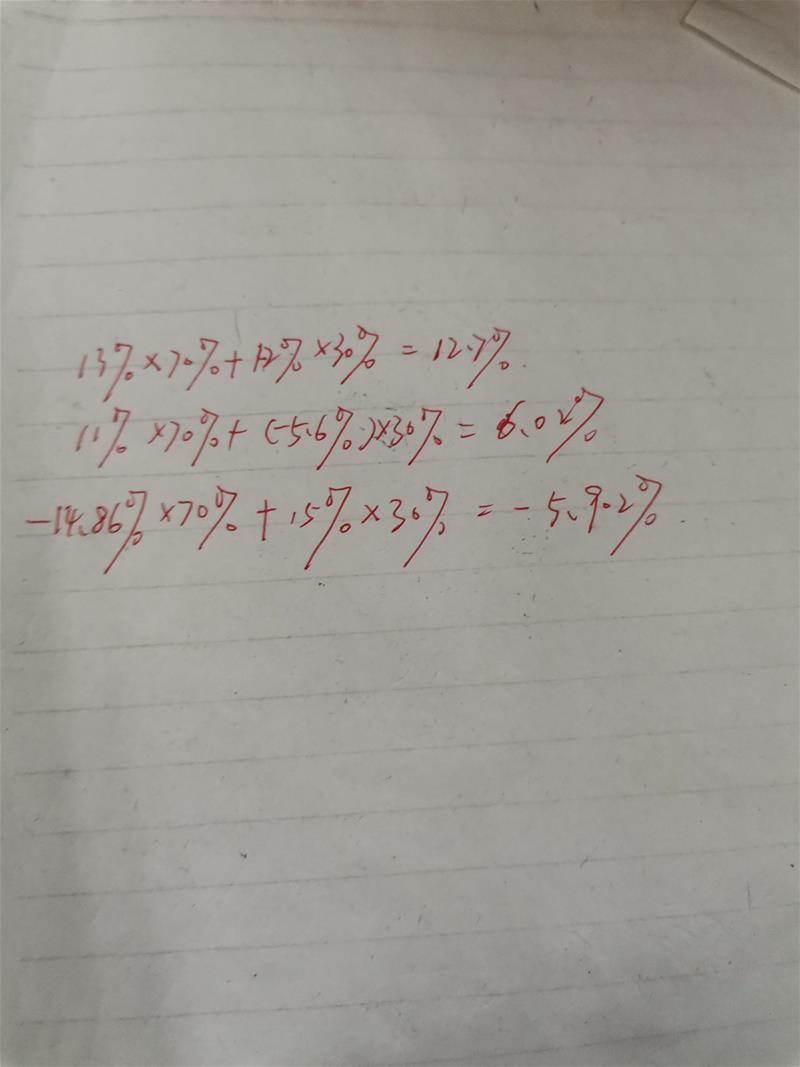 13%×70%+12%×30%=12.7%.
11%×70%+(-5.6%)×30%=6.02%
-14.86%×70%+15%×30%=-5.902%.